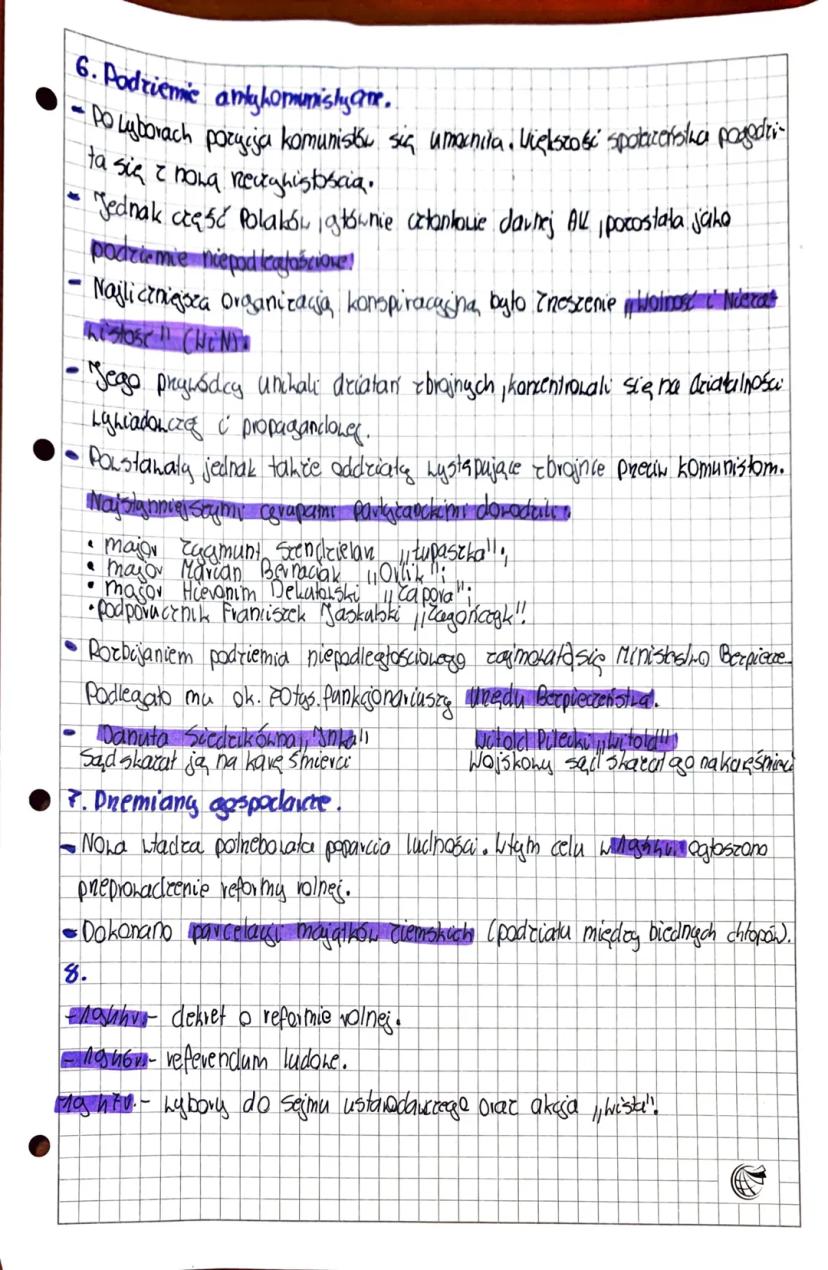 6. Podziemie antykomunistyczne.
- Po wyborach pozycja komunistów się umocniła. Większość społeczeństwa pogodzi-
ła się z nową rzeczywistością.
- Jednak część Polaków, głównie członkowie dawnej AK, pozostała jako
podziemie niepodległościowe!
- Najliczniejszą organizacją konspiracyjną było Zrzeszenie "Wolność i Niezawi-
wisłość" (WiN).
- Jego przywódcy unikali działań zbrojnych, koncentrowali się na działalności
wywiadowczej i propagandowej.
- Powstawały jednak także oddziały występujące zbrojnie przeciw komunistom.
Najsłynniejszymi grupami partyzanckimi dowodzili:
• major Zygmunt Szendzielarz „Łupaszka";
• major Marian Bernaciak „Orlik";
• major Hieronim Dekutowski „Zapora";
• podporucznik Franciszek Jaskulski „Zagończyk".
- Rozbijaniem podziemia niepodległościowego zajmowało się Ministerstwo Bezpiecze.
Podlegało mu ok. 20 tys. funkcjonariuszy Urzędu Bezpieczeństwa.
- Danuta Siedzikówna „Inka" Witold Pilecki „Witold"
Sąd skazał ją na karę śmierci Wojskowy sąd skazał go na karę śmierci
7. Przemiany gospodarcze.
- Nowa władza potrzebowała poparcia ludności. W tym celu w 1944r. ogłoszono
przeprowadzenie reformy rolnej.
- Dokonano parcelacji majątków ziemskich (podziału między biednych chłopów).
8.
- 1944r. - dekret o reformie rolnej.
- 1946r. - referendum ludowe.
1947r. - wybory do sejmu ustawodawczego oraz akcja „Wisła".